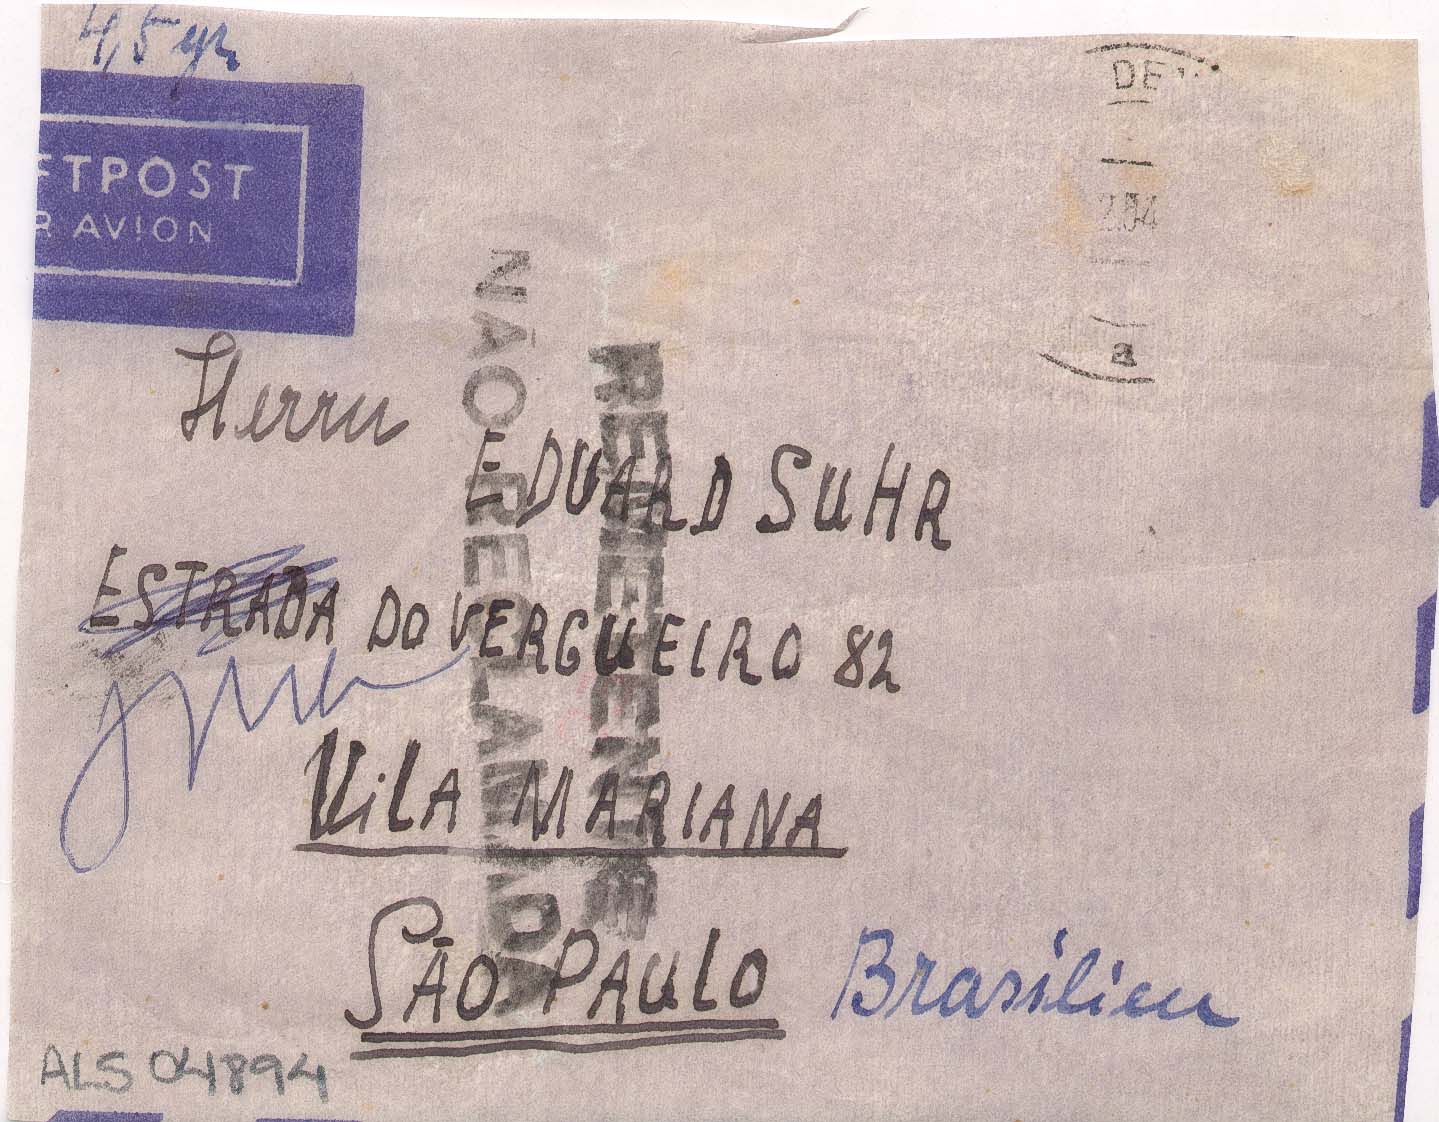 4,5 gr
FTPOST
R AVION
DE
2.54
a
Herrn
EDUARD SUHR
ESTRADA DO VERGUEIRO 82
VILA MARIANA
SÃO PAULO Brasilien
NÃO RECLAMADA
REMETENTE
ALS 04894